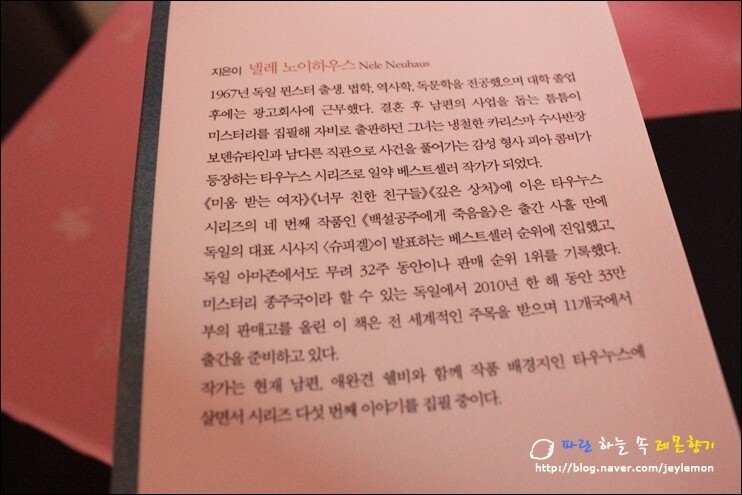 지은이 넬레 노이하우스 Nele Neuhaus
1967년 독일 뮌스터 출생. 법학, 역사학, 독문학을 전공했으며 대학 졸업
후에는 광고회사에 근무했다. 결혼 후 남편의 사업을 돕는 틈틈이
미스터리를 집필해 자비로 출판하던 그녀는 냉철한 카리스마 수사반장
보덴슈타인과 남다른 직관으로 사건을 풀어가는 감성 형사 피아 콤비가
등장하는 타우누스 시리즈로 일약 베스트셀러 작가가 되었다.
《미움 받는 여자》《너무 친한 친구들》《깊은 상처》에 이은 타우누스
시리즈의 네 번째 작품인 《백설공주에게 죽음을》은 출간 사흘 만에
독일의 대표 시사지 〈슈피겔〉이 발표하는 베스트셀러 순위에 진입했고,
독일 아마존에서도 무려 32주 동안이나 판매 순위 1위를 기록했다.
미스터리 종주국이라 할 수 있는 독일에서 2010년 한 해 동안 33만
부의 판매고를 올린 이 책은 전 세계적인 주목을 받으며 11개국에서
출간을 준비하고 있다.
작가는 현재 남편, 애완견 쉘비와 함께 작품 배경지인 타우누스에
살면서 시리즈 다섯 번째 이야기를 집필 중이다.
파란 하늘 속 레몬향기
http://blog.naver.com/jeylemon